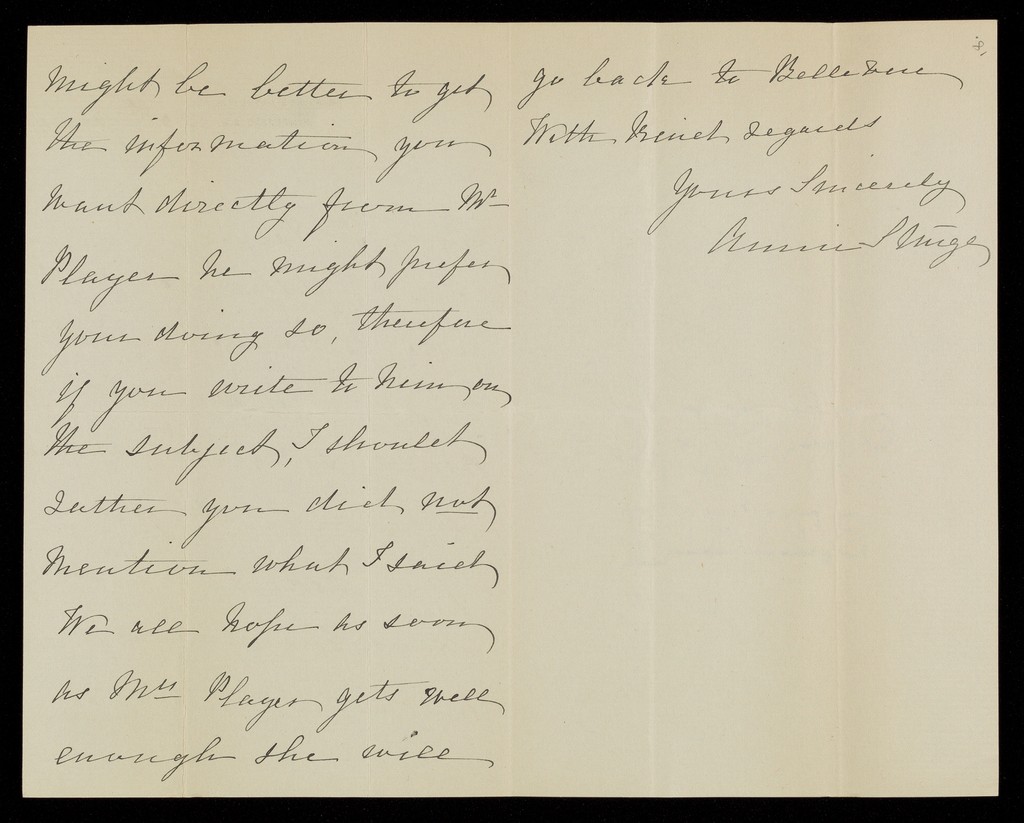 might be better to get
the information you
want directly from Mr
Player he might prefer
your doing so, therefore
if you write to him on
the subject, I should
rather you did not
mention what I said
We all hope as soon
as Mrs Player gets well
enough she will
go back to Bellevue
With kind regards
Yours Sincerely
Annie